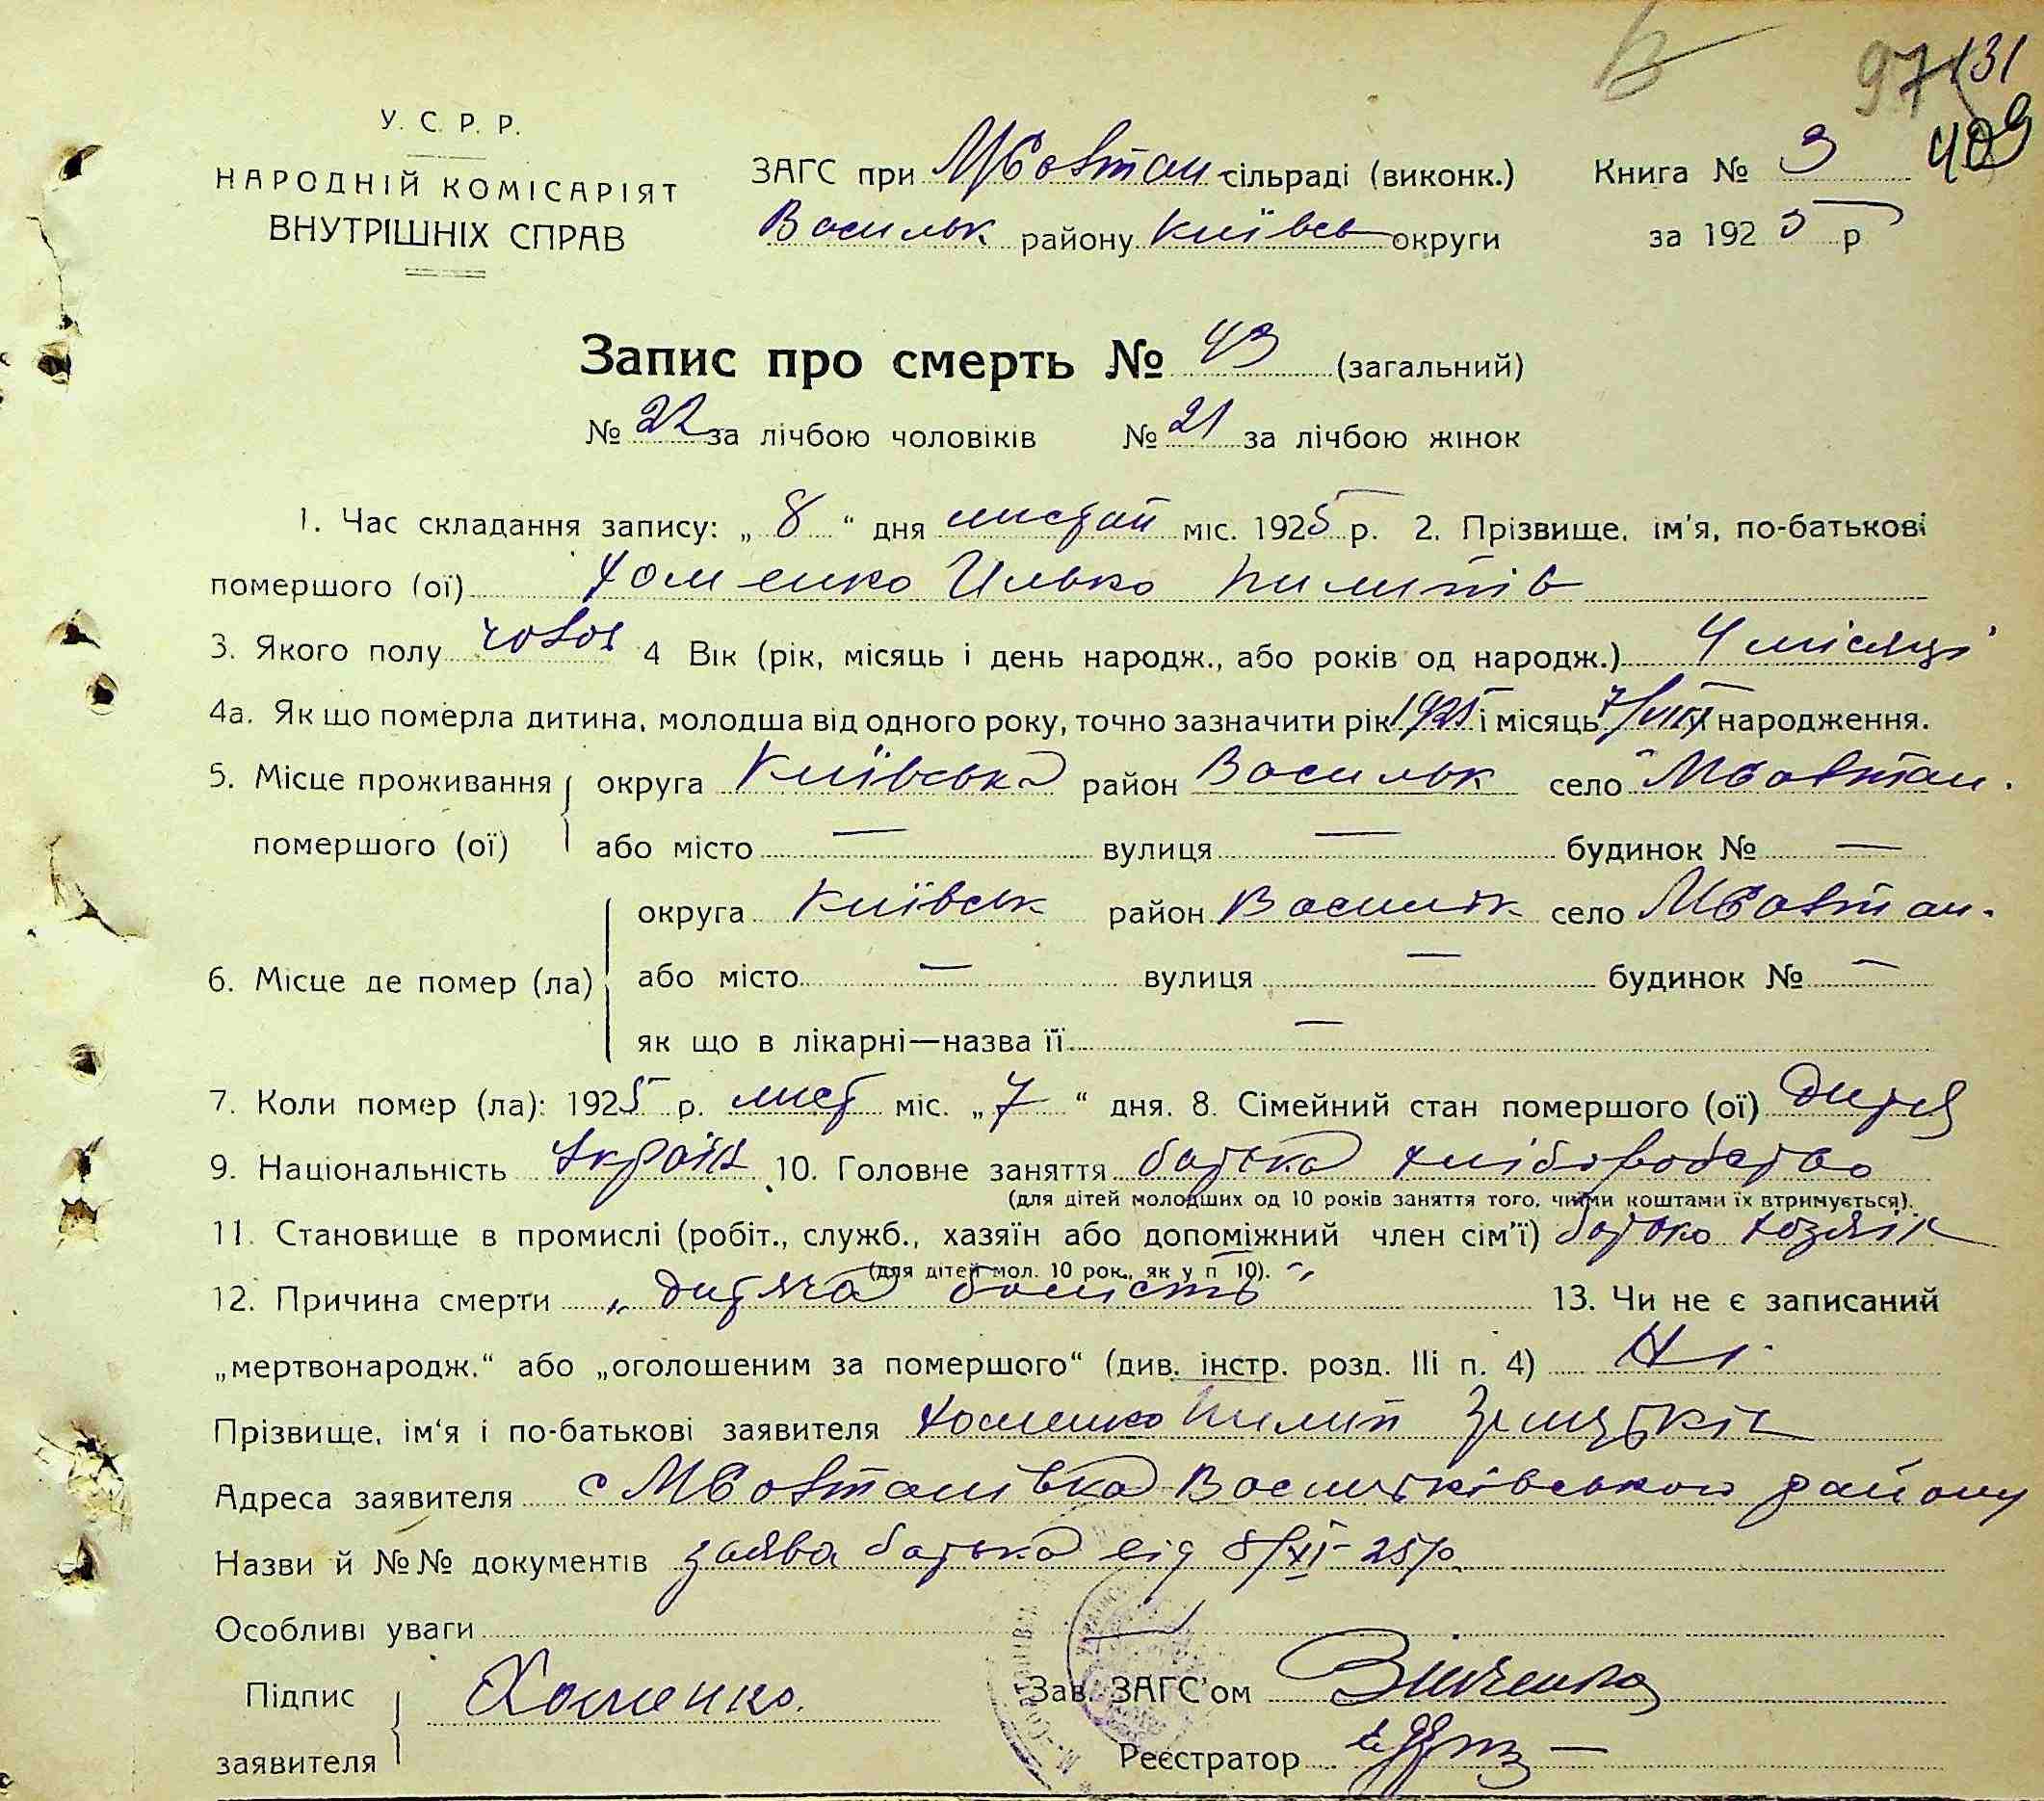 В 97 131
409
У. С. Р. Р.
НАРОДНІЙ КОМІСАРІЯТ
ВНУТРІШНІХ СПРАВ
ЗАГС при МСовтан сільраді (виконк.)
Васильк району Київсь округи
Книга № 3
за 1925 р
Запис про смерть № 43 (загальний)
№ 22 за лічбою чоловіків № 21 за лічбою жінок
1. Час складання запису: „ 8 “ дня листоп міс. 1925 р. 2. Прізвище, ім'я, по-батькові
помершого (ої) Хоменко Илько Пилипів
3. Якого полу чолов 4 Вік (рік, місяць і день народж., або років од народж.) 4 місяці
4а. Як що померла дитина, молодша від одного року, точно зазначити рік 1925 і місяць народження.
5. Місце проживання помершого (ої) округа Київська район Васильк село МСовтан.
або місто — вулиця — будинок № —
6. Місце де помер (ла) округа Київськ район Васильк село МСовтан.
або місто — вулиця — будинок № —
як що в лікарні—назва її —
7. Коли помер (ла): 1925 р. лист міс. „ 7 “ дня. 8. Сімейний стан помершого (ої) дитя
9. Національність Україн 10. Головне заняття батька хліборобство
(для дітей молодших од 10 років заняття того, чиїми коштами їх втримується).
11. Становище в промислі (робіт., служб., хазяїн або допоміжний член сім'ї) батько хозяїн
(для дітей мол. 10 рок., як у п 10).
12. Причина смерти „дитяча болість" 13. Чи не є записаний
„мертвонародж.“ або „оголошеним за помершого“ (див. інстр. розд. III п. 4) Ні
Прізвище, ім'я і по-батькові заявителя Хоменко Пилип
Адреса заявителя с МСовтанівка Васильківського району
Назви й №№ документів заява батька від 8/XI-25р
Особливі уваги
Підпис заявителя Хоменко.
Зав. ЗАГС'ом Зінченко
Реєстратор